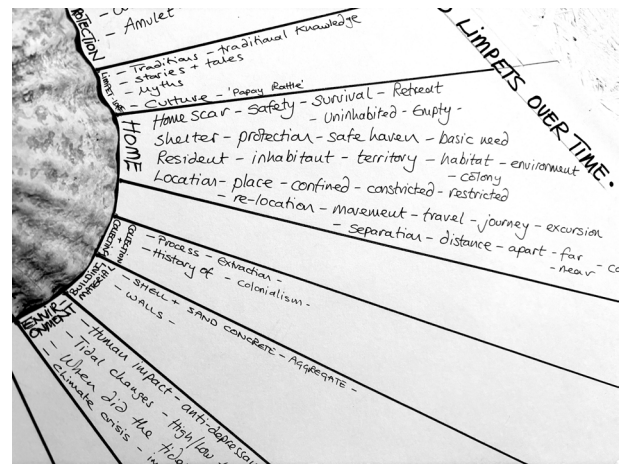 - Amulet
- Traditions - traditional knowledge
- stories + tales
- Myths
- Culture - 'Papay Rattle'
LIMPETS OVER TIME.
HOME
Home scar - safety - survival - Retreat
- Uninhabited - Empty -
shelter - protection - safe haven - basic need
Resident - inhabitant - territory - habitat - environment
- colony
Location - place - confined - constricted - restricted
- re-location - movement - travel - journey - excursion
- separation - distance - apart - far
- near
COLLECTION + COLLECTING
- Process - extraction -
- History of - colonialism -
BUILDING MATERIAL
- SHELL + SAND CONCRETE - AGGREGATE -
- WALLS -
ENVIRONMENT
- Human impact - anti-depressa
- Tidal changes - High/low
- When did the tide
- climate crisis -